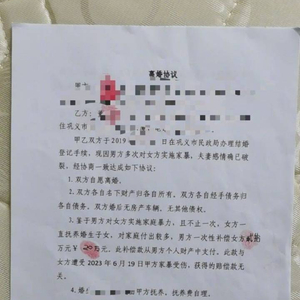 离婚协议
甲方
乙方：
住巩义市
甲乙双方于 2019 日在巩义市民政局办理结婚
登记手续，现因男方多次对女方实施家暴，夫妻感情确已破
裂，经协商一致达成如下协议：
1. 双方自愿离婚。
2. 双方各自名下财产归各自所有，双方各自经手债务归
各自债务。双方婚后无房产车辆，无其他债权。
3. 鉴于男方对女方实施家庭暴力，且不止一次，女方一
直抚养婚生子女，对家庭付出较多，男方一次性补偿女方
万元￥20万元，此补偿款从男方个人财产中支付。此款与
女方遭受 2023 年 6 月 19 日甲方家暴受伤，获得的赔偿款无
关。
4. 婚 甲方抚养，抚养费自理。